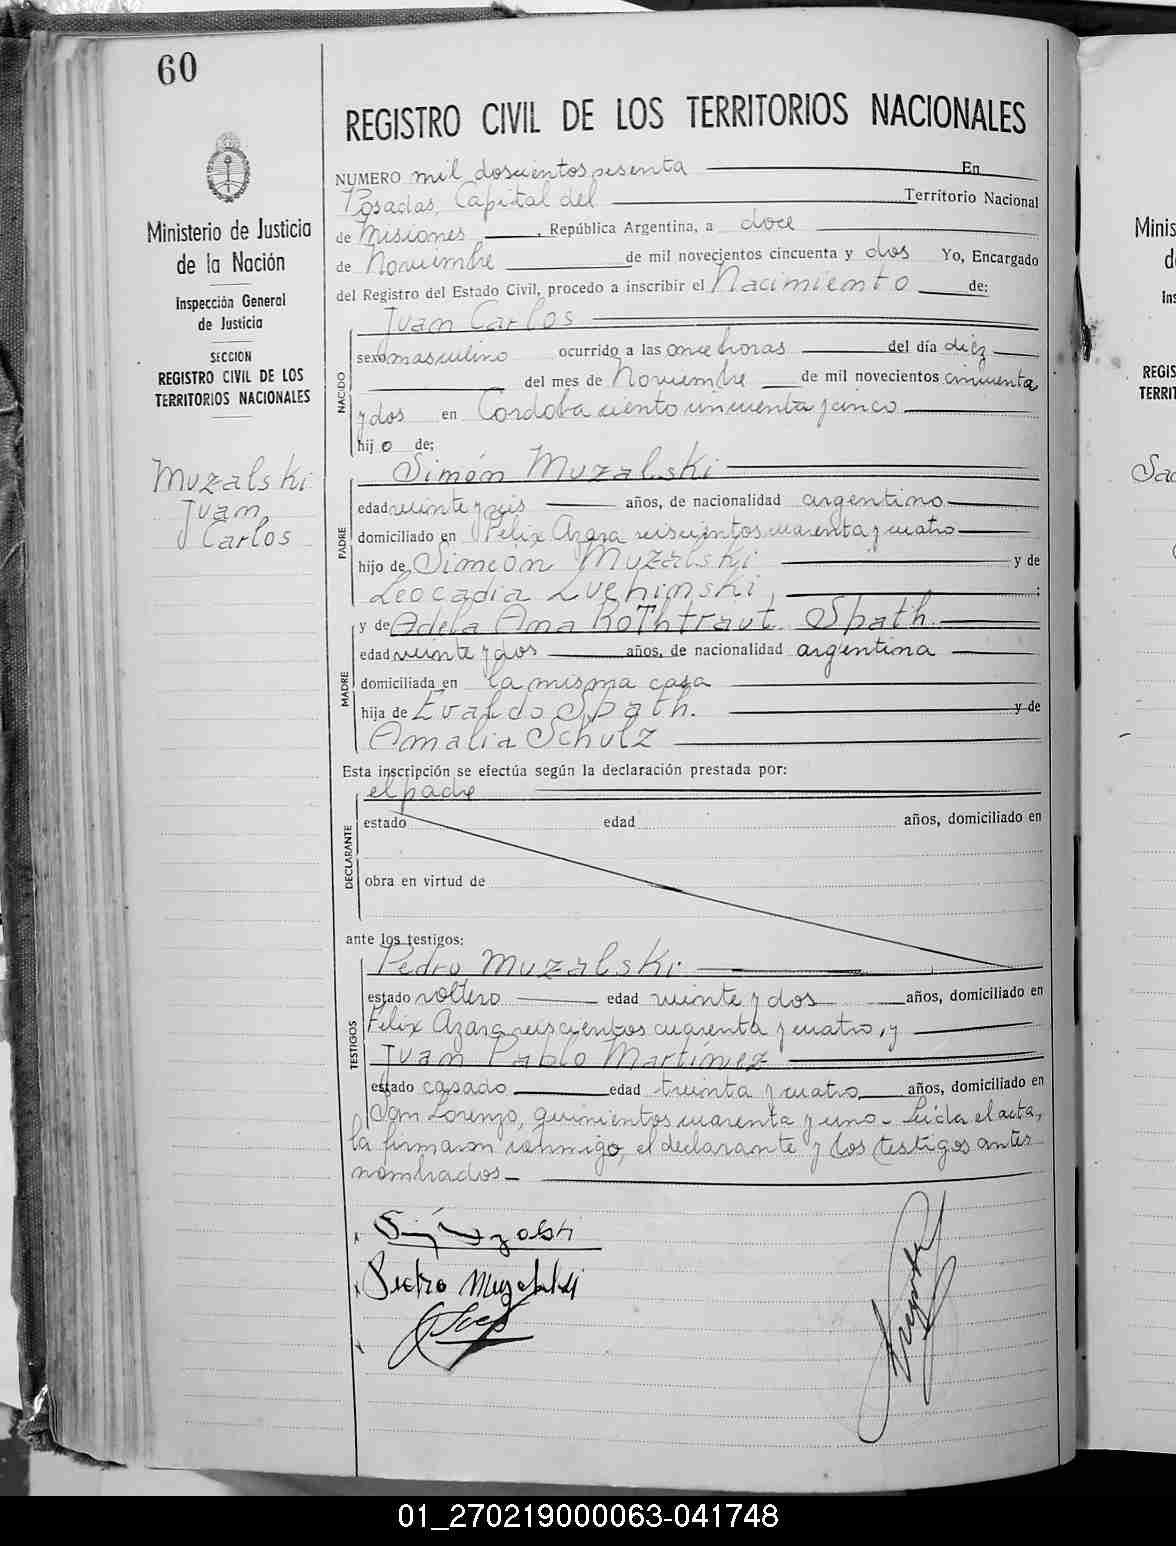 60
Ministerio de Justicia
de la Nación
Inspección General
de Justicia
SECCION
REGISTRO CIVIL DE LOS
TERRITORIOS NACIONALES
Muzalski
Juan
Carlos
REGISTRO CIVIL DE LOS TERRITORIOS NACIONALES
NUMERO mil doscientos sesenta En
Posadas, Capital del Territorio Nacional
de Misiones, República Argentina, a doce
de Noviembre de mil novecientos cincuenta y dos Yo, Encargado
del Registro del Estado Civil, procedo a inscribir el Nacimiento de:
Juan Carlos
NACIDO
sexo masculino ocurrido a las once horas del día diez
del mes de Noviembre de mil novecientos cincuenta
y dos en Cordoba ciento cincuenta y cinco
hijo de:
Simón Muzalski
PADRE
edad veinte y seis años, de nacionalidad argentino
domiciliado en Félix Azara seiscientos cuarenta y cuatro
hijo de Simeón Muzalski y de
Leocadia Luchinski;
y de Adela Ana Rothtraut Spath
MADRE
edad veinte y dos años, de nacionalidad argentina
domiciliada en la misma casa
hija de Evaldo Spath. y de
Amalia Schulz
Esta inscripción se efectúa según la declaración prestada por:
el padre
DECLARANTE
estado edad años, domiciliado en
obra en virtud de
ante los testigos:
Pedro Muzalski
TESTIGOS
estado soltero edad veinte y dos años, domiciliado en
Félix Azara seiscientos cuarenta y cuatro, y
Juan Pablo Martínez
estado casado edad treinta y cuatro años, domiciliado en
San Lorenzo, quinientos cuarenta y uno. Leída el acta,
la firmaron conmigo, el declarante y los testigos antes
nombrados.
Pedro Muzalski
Minis
d
Ins
REGIS
TERRIT
01_270219000063-041748